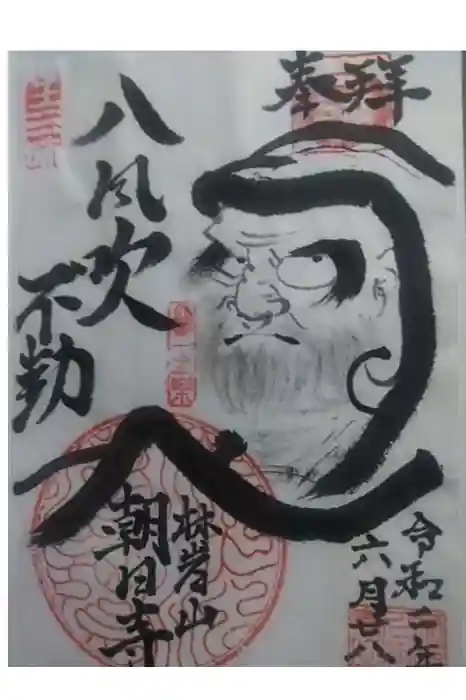 奉拝
令和二年
六月廿八
八風吹
不動
山
朝日寺